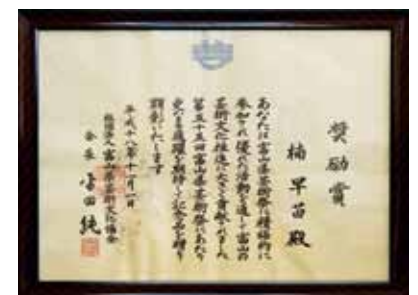 奨励賞
楠早苗殿
あなたは富山県芸術祭に積極的に
参加され優れた活動を通して富山の
芸術文化推進に大きく貢献されました
第五十五回富山県芸術祭にあたり
更なる活躍を期待して記念品を贈り
顕彰いたします
平成十八年十一月一日
富山県芸術文化協会
会長 吉田純